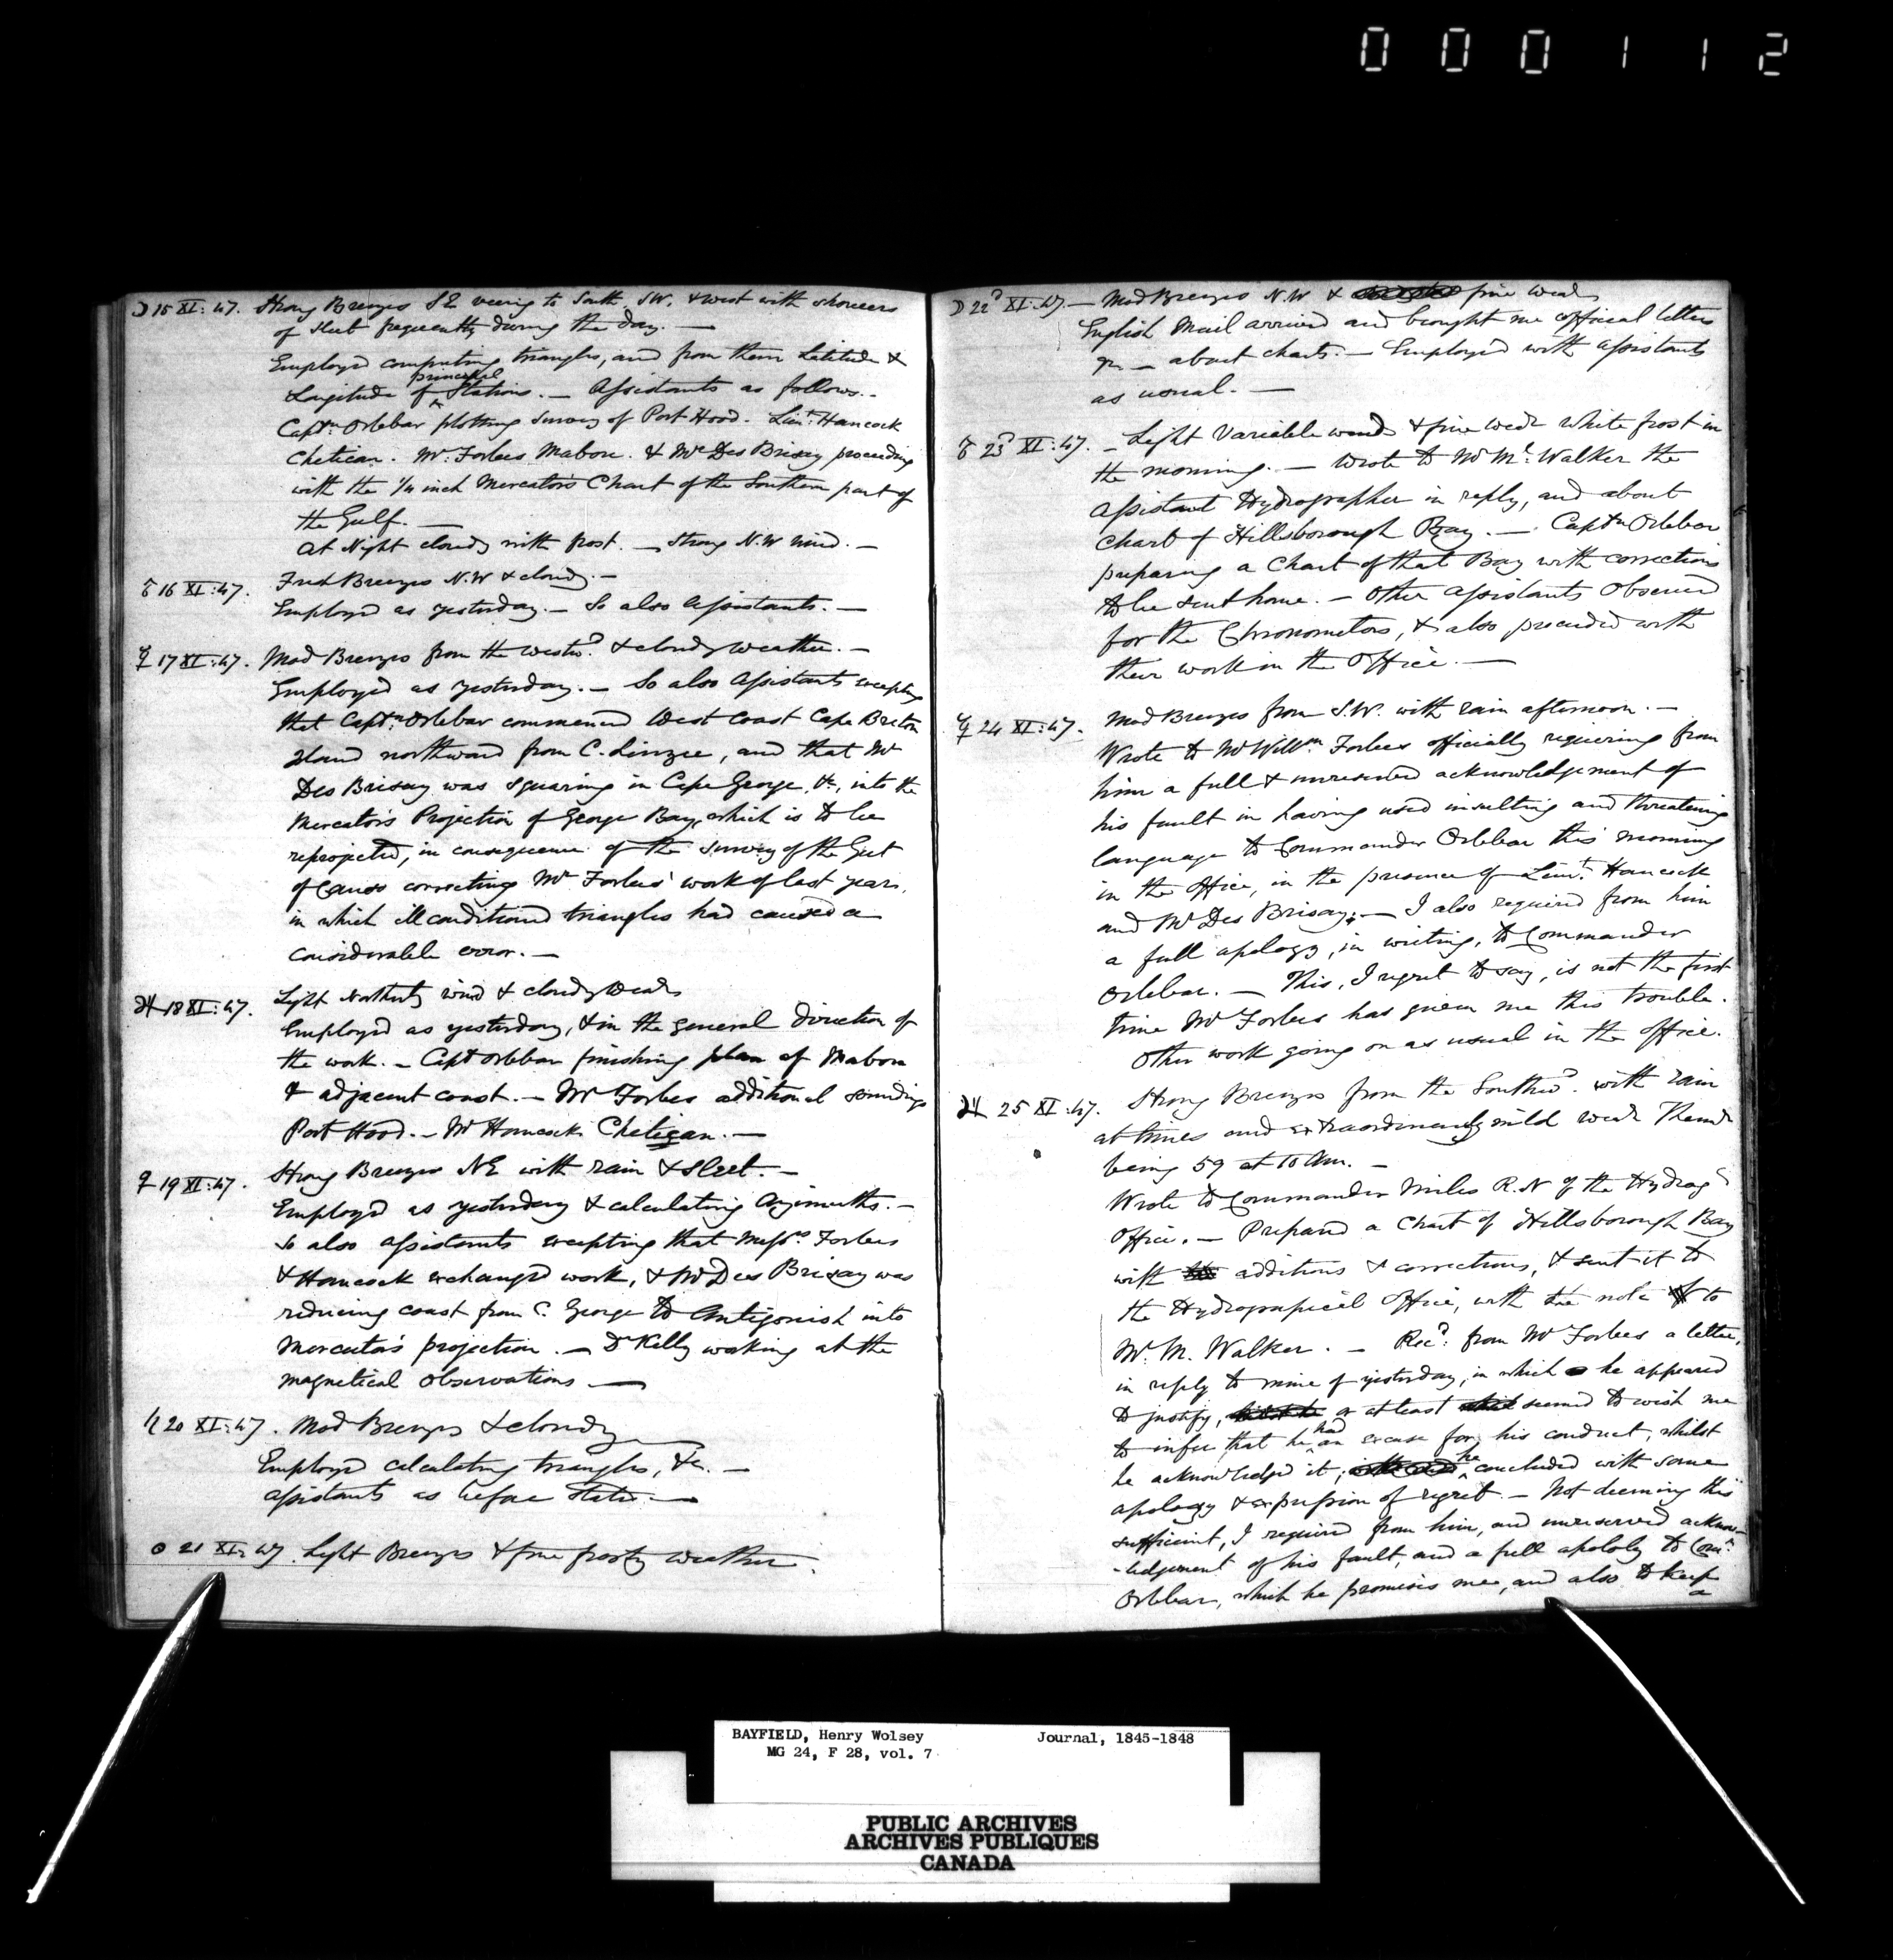 000112
☽ 15 XI: 47. Strong Breezes SE veering to South, SW. & west with showers
of sleet frequently during the day. —
Employed computing triangles, and from them Latitude &
Longitude of principal Stations. — Assistants as follows. -
Captn. Orlebar plotting survey of Port Hood. Lieut. Hancock
Chetican. Mr. Forbes Mabou. & Mr Des Brisay proceeding
with the 1/4 inch Mercators Chart of the Southern part of
the Gulf. —
At Night cloudy with frost. — Strong N.W wind. —
♂ 16 XI: 47. Fresh Breezes N.W & cloudy. —
Employed as yesterday. — So also Assistants. —
☿ 17 XI: 47. Mod Breezes from the westwd. & cloudy weather. —
Employed as yesterday. — So also Assistants excepting
that Captn. Orlebar commenced West Coast Cape Breton
Island northward from C. Linzee, and that Mr
Des Brisay was squaring in Cape George, &c, into the
Mercators Projection of George Bay, which is to be
reprojected, in consequence of the survey of the Gut
of Canso correcting Mr Forbes' work of last year,
in which ill conditioned triangles had caused a
considerable error. —
♃ 18 XI: 47. Light Northerly wind & cloudy Weadr
Employed as yesterday, & in the general direction of
the work. — Capt Orlebar finishing plan of Mabou
& adjacent coast. — Mr Forbes additional soundings
Port Hood. — Mr Hancock Chetigan. —
♀ 19 XI: 47. Strong Breezes NE with rain & sleet. —
Employed as yesterday & calculating Azimuths. —
So also assistants excepting that Messrs Forbes
& Hancock exchanged work, & Mr Des Brisay was
reducing coast from C. George to Antigonish into
Mercators projection. — Dr Kelly working at the
magnetical observations —
♄ 20 XI: 47. Mod Breezes & cloudy —
Employed calculating triangles, &c. —
Assistants as before stated. —
☉ 21 XI: 47. Light Breezes & fine frosty weather.
☽ 22d XI: 47. — Mod Breezes N.W & fine weadr
English Mail arrived and brought me official letters
— about charts. — Employed with Assistants
as usual. —
♂ 23d XI: 47. — Light Variable winds & fine weadr White frost in
the morning. — Wrote to Mr M. Walker the
Assistant Hydrographer in reply, and about
chart of Hillsborough Bay. — Captn Orlebar
preparing a Chart of that Bay with corrections
to be sent home. — Other assistants observed
for the Chronometers, & also proceeded with
their work in the Office. —
☿ 24 XI: 47. Mod Breezes from S.W. with rain afternoon. —
Wrote to Mr Willm. Forbes officially requiring from
him a full & unreserved acknowledgement of
his fault in having used insulting and threatening
language to Commander Orlebar this morning
in the Office, in the presence of Lieut. Hancock
and Mr Des Brisay; — I also required from him
a full apology, in writing, to Commander
Orlebar. — This, I regret to say, is not the first
time Mr Forbes has given me this trouble.
Other work going on as usual in the office.
♃ 25 XI: 47. Strong Breezes from the Southwd. with rain
at times and extraordinarily mild weadr Thermr
being 59 at 10 Am. —
Wrote to Commander Miles R.N of the Hydrogl
Office. — Prepared a Chart of Hillsborough Bay
with additions & corrections, & sent it to
the Hydrograpical Office, with the note to
Mr. M. Walker. — Recd. from Mr Forbes a letter,
in reply to mine of yesterday, in which he appeared
to justify, or at least seemed to wish me
to infer that he had an excuse for his conduct, whilst
he acknowledged it; he concluded with some
apology & expression of regret. — Not deeming this
sufficient, I required from him, and unreserved acknow-
-ledgement of his fault, and a full apology to Comr.
Orlebar, which he promises me, and also to keep
a
BAYFIELD, Henry Wolsey Journal, 1845-1848
MG 24, F 28, vol. 7
PUBLIC ARCHIVES
ARCHIVES PUBLIQUES
CANADA